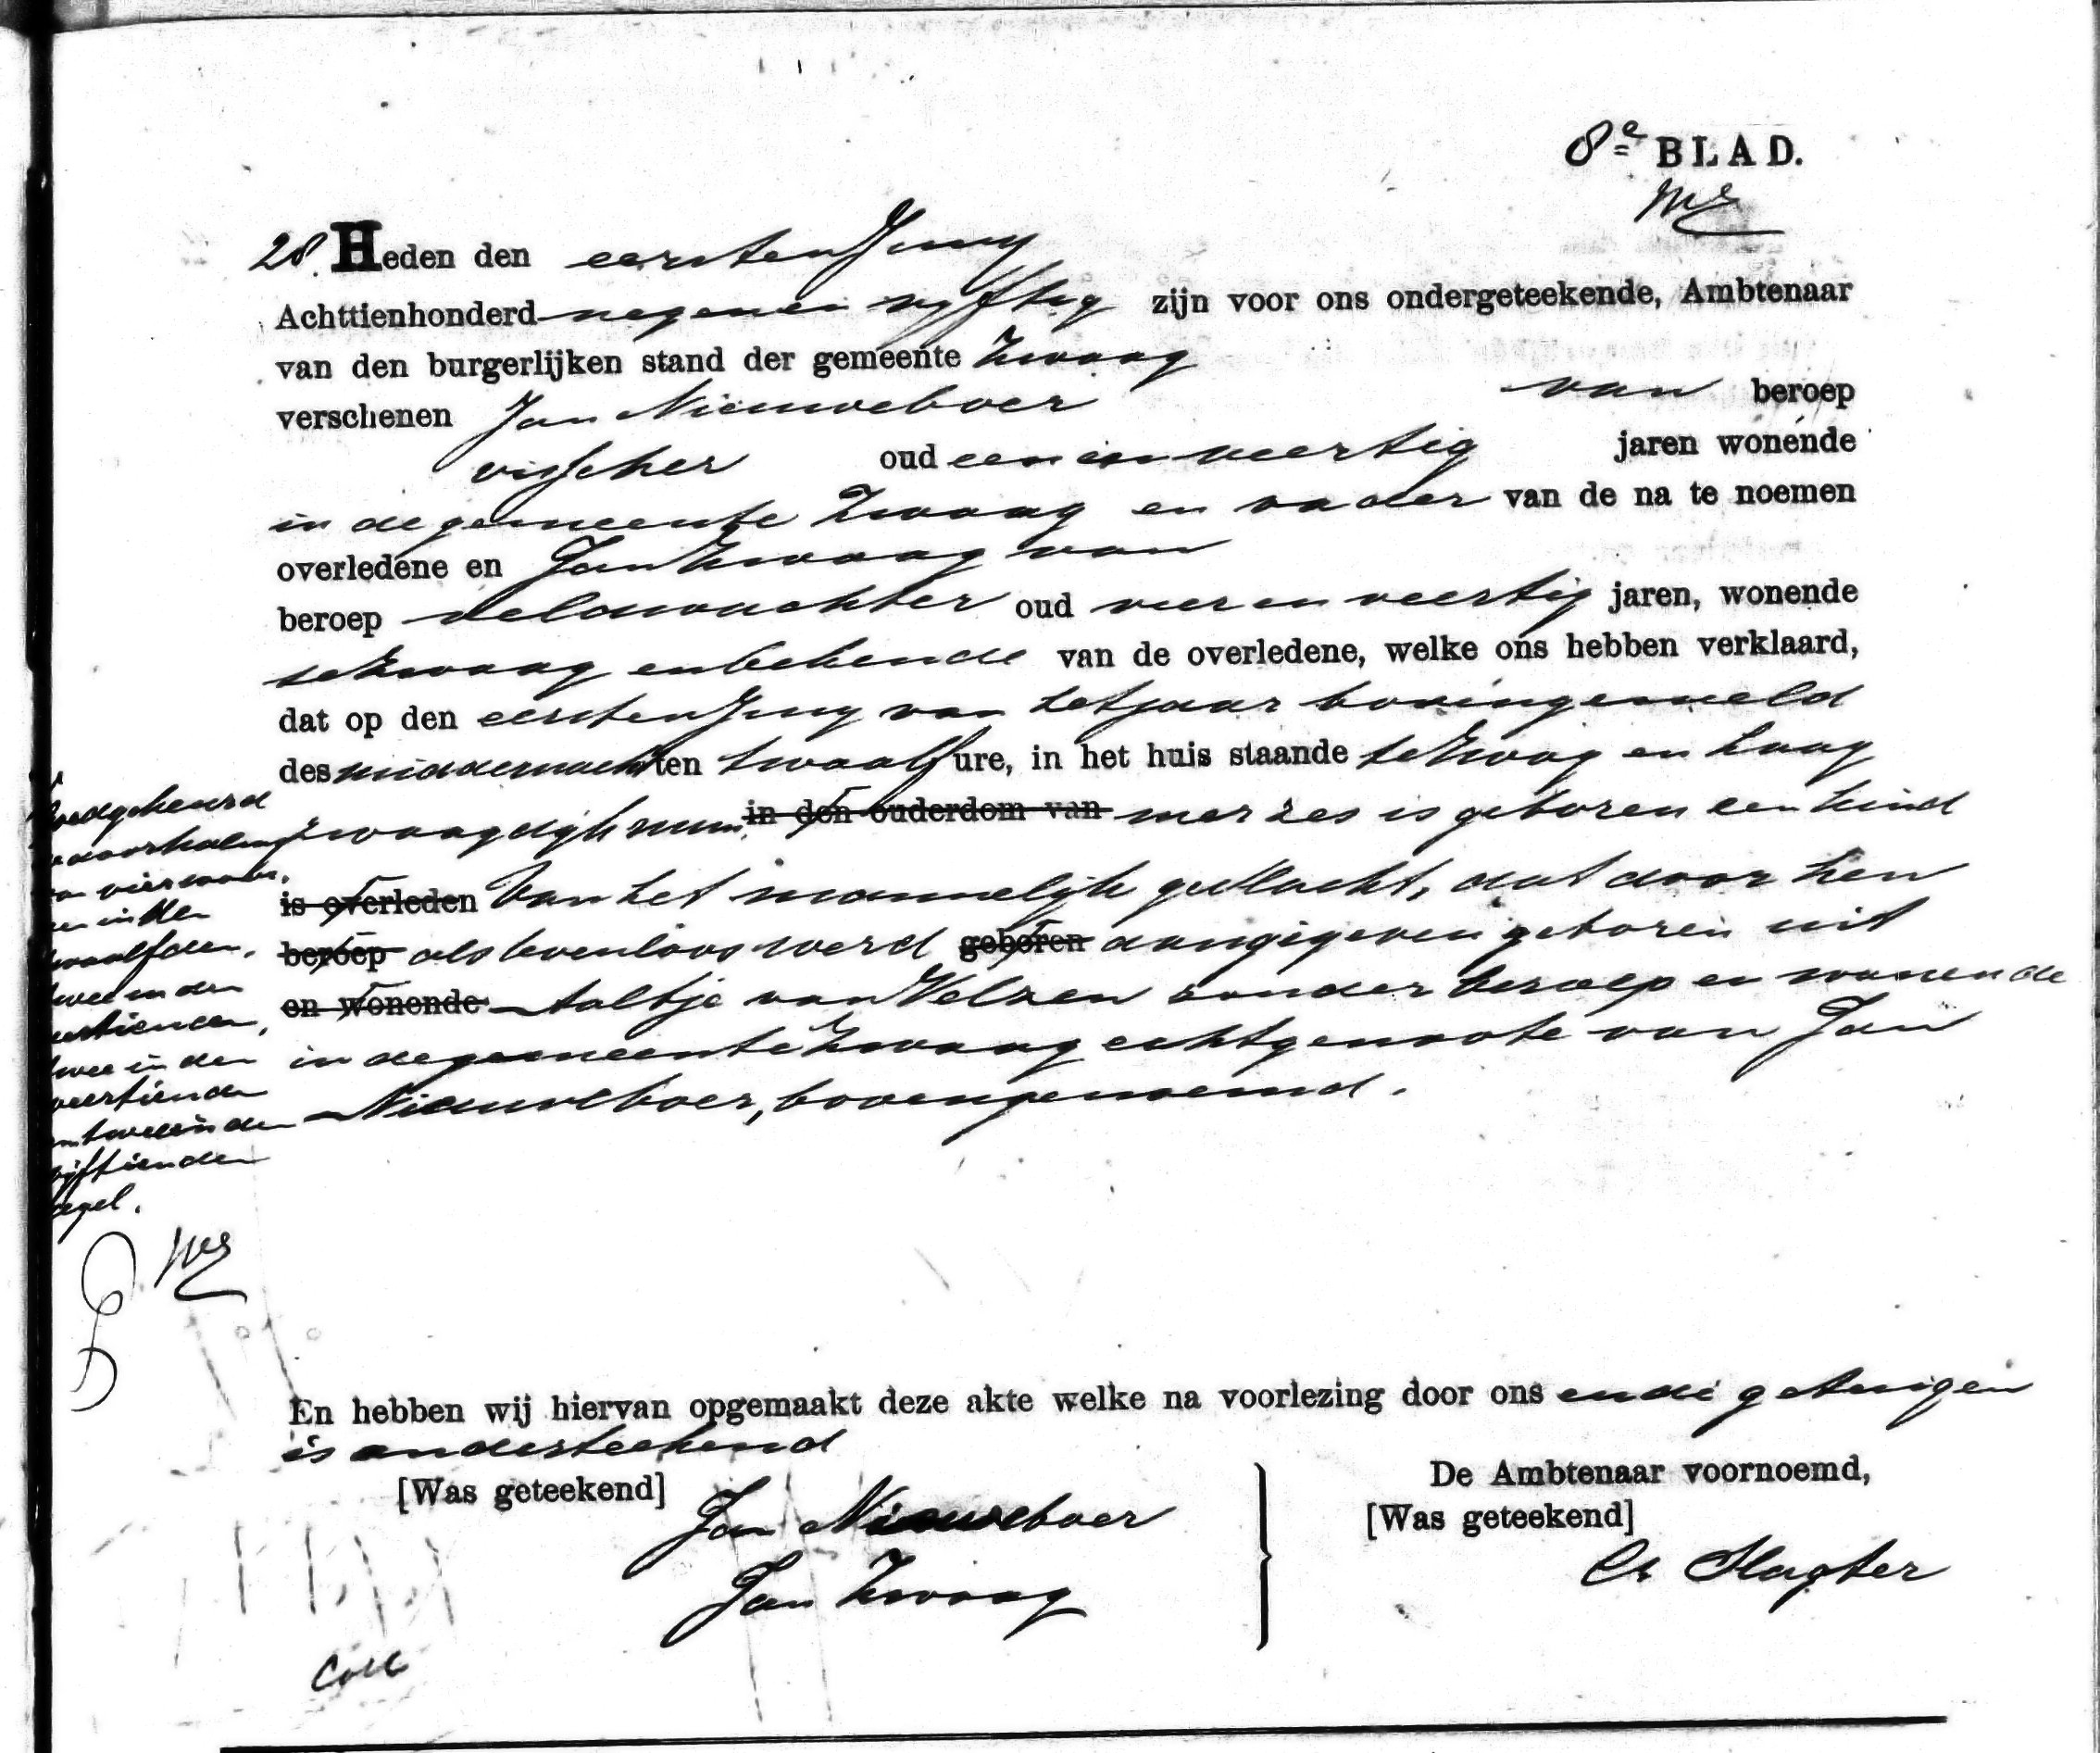 8e BLAD.
28. Heden den eersten Juny
Achttienhonderd negen en vyftig zijn voor ons ondergeteekende, Ambtenaar
van den burgerlijken stand der gemeente Zwaag
verschenen Jan Nieuweboer van beroep
visscher oud een en veertig jaren wonende
in de gemeente Zwaag en vader van de na te noemen
overledene en Jan Zwaag van
beroep veldwachter oud vier en veertig jaren, wonende
te Zwaag en bekende van de overledene, welke ons hebben verklaard,
dat op den eersten Juny van het jaar bovengemeld
des middernachtten twaalf ure, in het huis staande te Zwaag en Laag
zwaagdijk num. in den ouderdom van mer zes is geboren een kind
is overleden van het mannelijk geslacht, dat door hen
beroep als levenloos werd geboren aangegeven geboren uit
en wonende Aaltje van Velzen zonder beroep en wonende
in de gemeente Zwaag echtgenoote van Jan
Nieuweboer, bovengenoemd.
Goedgekeurd
de doorhaling
van vier woorden
in den
twaalfden,
twee in den
dertienden,
twee in den
veertienden
en twee in den
vijftienden
regel.
En hebben wij hiervan opgemaakt deze akte welke na voorlezing door ons en de getuigen
is onderteekend
[Was geteekend] Jan Nieuweboer
Jan Zwaag
De Ambtenaar voornoemd,
[Was geteekend]
Slagter
Coll